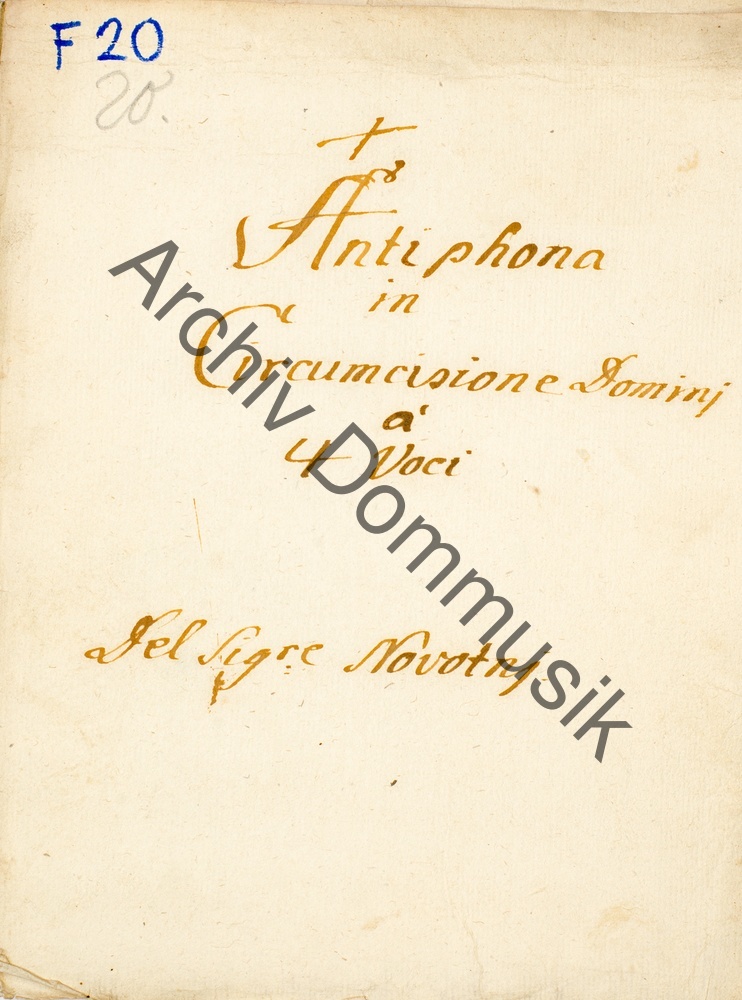 F 20
20.
Antiphona
in
Circumcisione Dominj
à
4 Voci
Del Sigre Novotnj
Archiv Dommusik